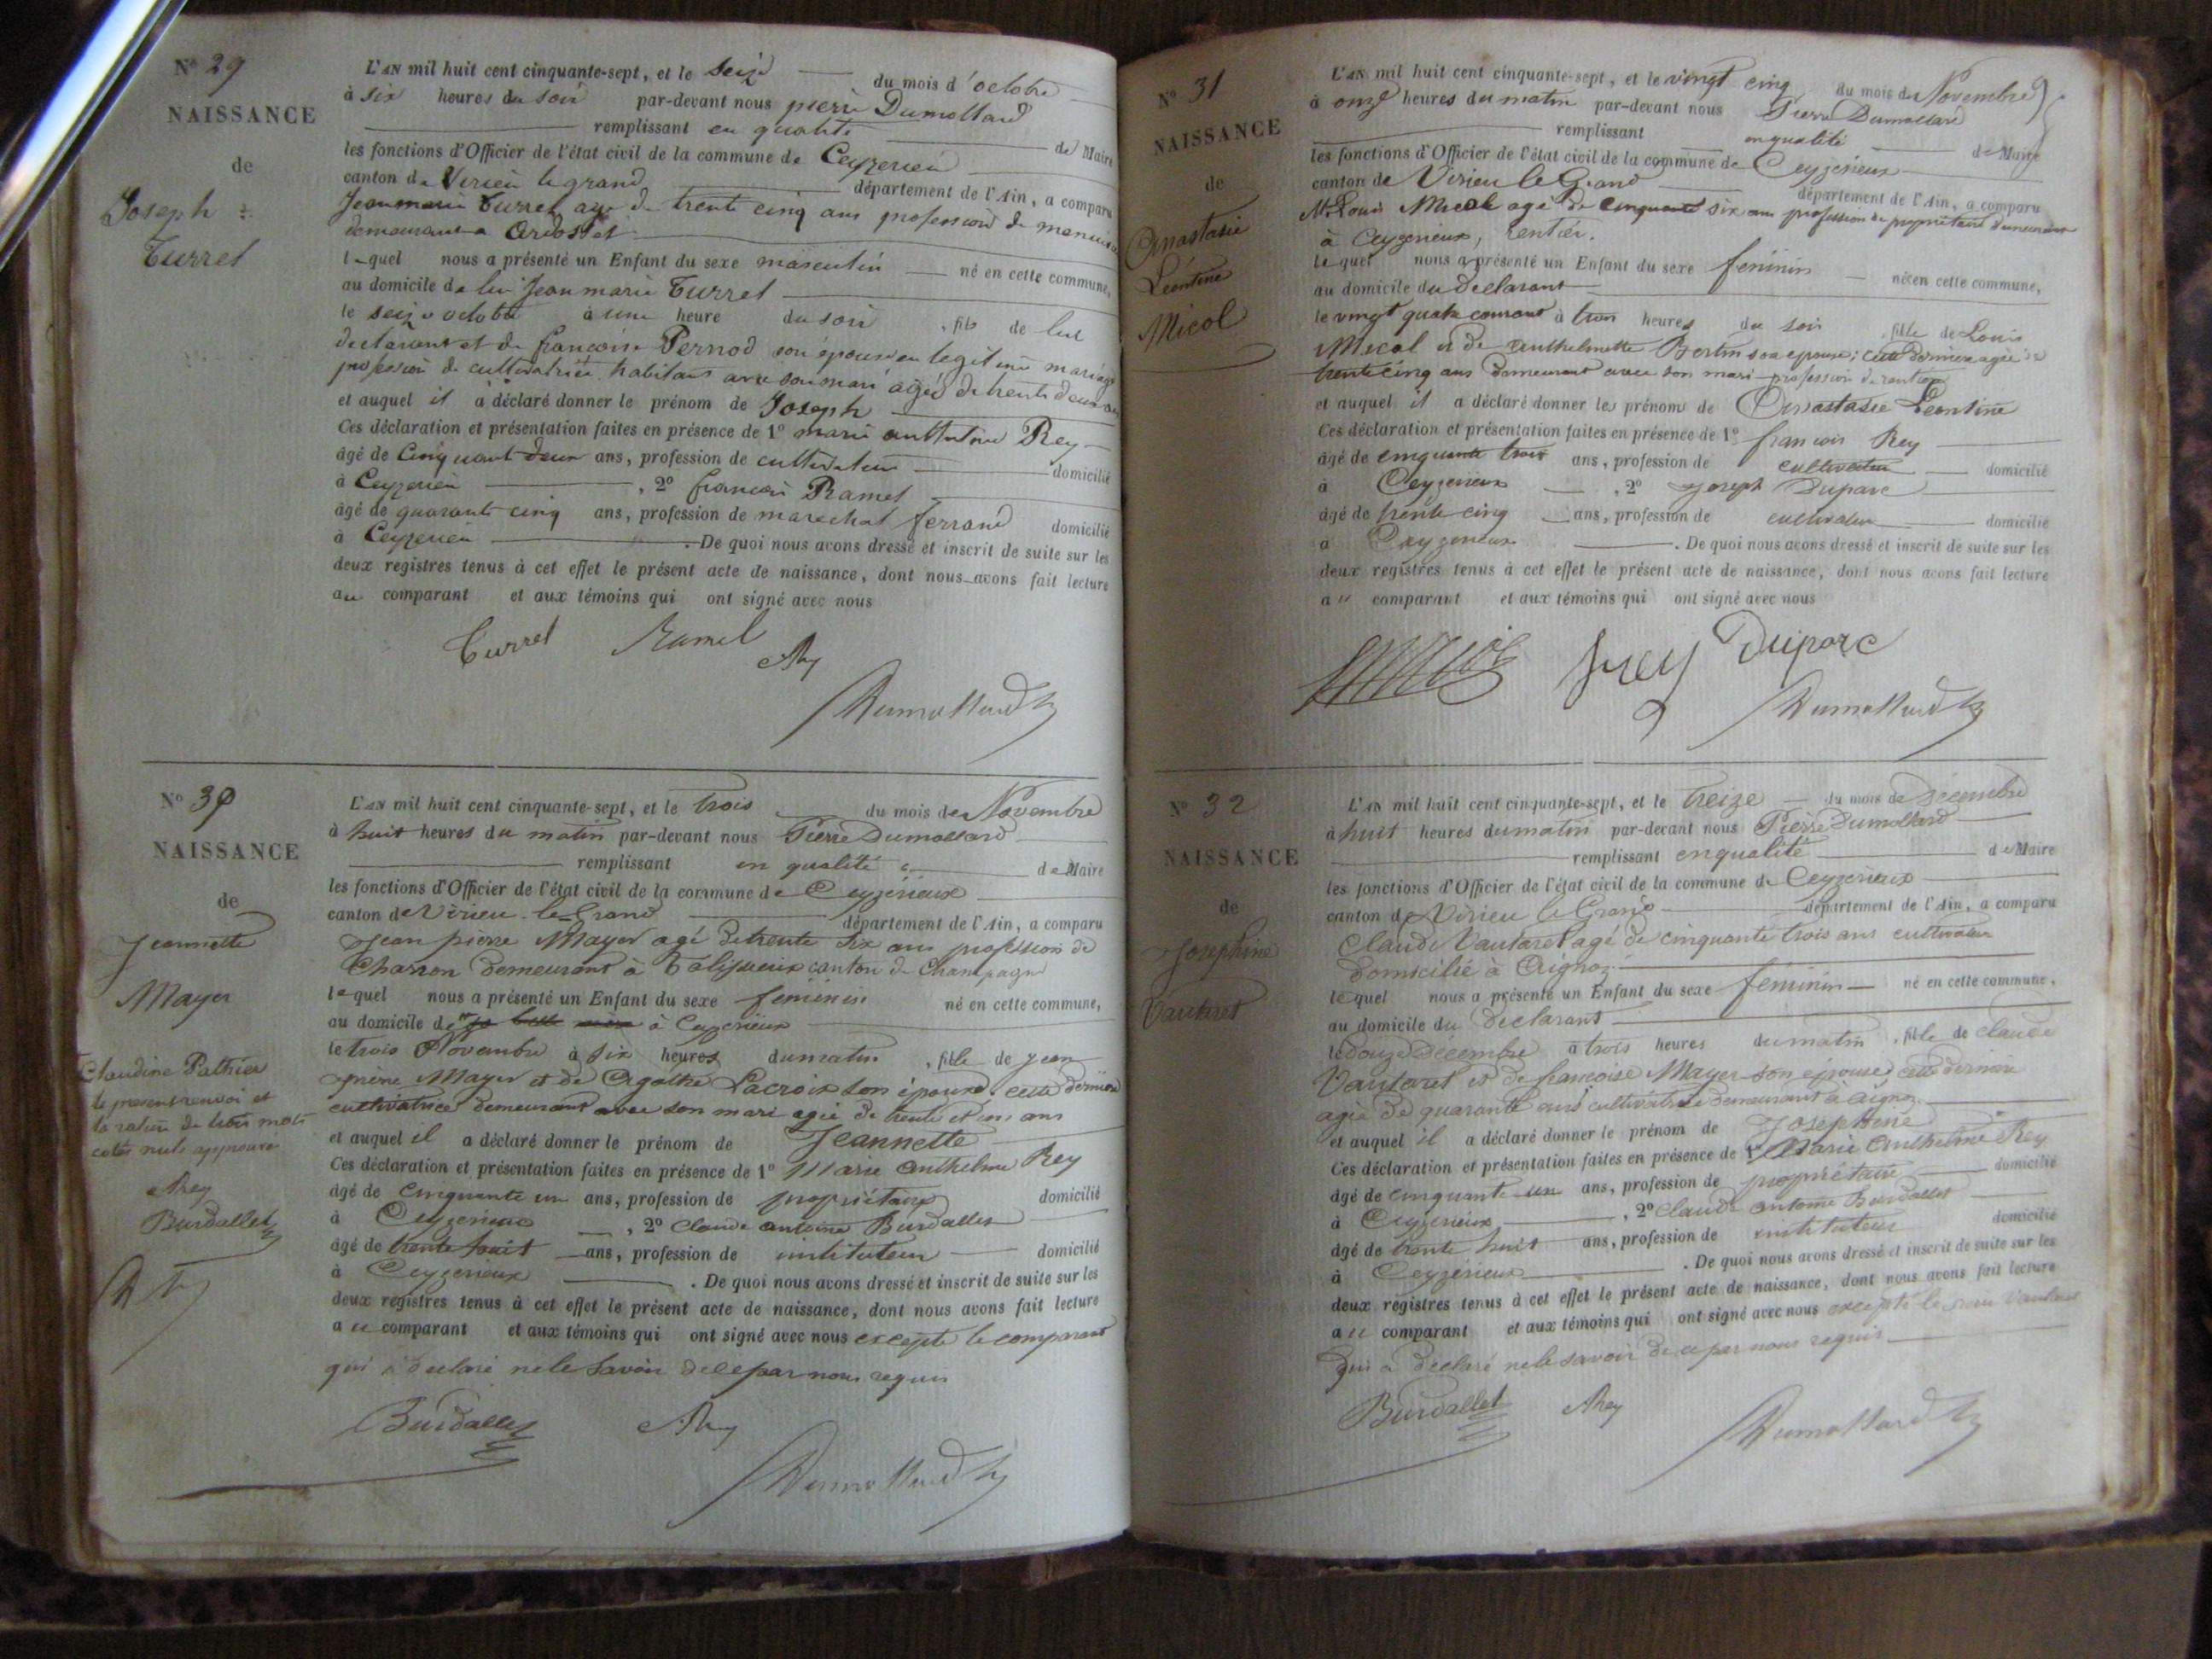 N° 29
NAISSANCE
de
Joseph
Turrel
L'AN mil huit cent cinquante-sept, et le seize du mois d'octobre
à six heures du soir par-devant nous pierre Dumollard
remplissant en qualité de Maire
les fonctions d'Officier de l'état civil de la commune de Ceyzerieu
canton de Virieu le grand département de l'Ain, a comparu
Jean marie Turrel age de trente cinq ans profession de
demeurant a
lequel nous a présenté un Enfant du sexe masculin né en cette commune,
au domicile de lui Jean marie Turrel
le seize octobre à une heure du soir, fils de lui
declarant et de françoise Pernod son épouse en legitime mariage
profession de cultivatrice habitant avec son mari agée de trente deux ans
et auquel il a déclaré donner le prénom de Joseph
Ces déclaration et présentation faites en présence de 1° marie Rey
âgé de Cinquante deux ans, profession de cultivateur domicilié
à Ceyzerieu, 2° françois Ramel
âgé de quarante cinq ans, profession de marechal ferrand domicilié
à Ceyzerieu. De quoi nous avons dressé et inscrit de suite sur les
deux registres tenus à cet effet le présent acte de naissance, dont nous avons fait lecture
au comparant et aux témoins qui ont signé avec nous
Turrel Ramel Rey
Dumollard
N° 30
NAISSANCE
de
Jeannette
Mayer
Claudine Pathier
le present renvoi et
la rature de trois mots
cotés nuls approuvé
Rey
Burdallet
L'AN mil huit cent cinquante-sept, et le trois du mois de Novembre
à huit heures du matin par-devant nous Pierre Dumollard
remplissant en qualité de Maire
les fonctions d'Officier de l'état civil de la commune de Ceyzerieux
canton de Virieu-le-Grand département de l'Ain, a comparu
Jean pierre Mayer agé de trente six ans profession de
Charron demeurant à Talissieux canton de Champagne
lequel nous a présenté un Enfant du sexe féminin né en cette commune,
au domicile de sa belle mère à Ceyzerieux
le trois Novembre à six heures du matin, fille de jean
pierre Mayer et de Agathe Lacroix son épouse cette dernière
cultivatrice demeurant avec son mari agée de trente et un ans
et auquel il a déclaré donner le prénom de Jeannette
Ces déclaration et présentation faites en présence de 1° Marie Anthelme Rey
âgé de Cinquante un ans, profession de propriétaire domicilié
à Ceyzerieux, 2° Claude antoine Burdallet
âgé de trente huit ans, profession de instituteur domicilié
à Ceyzerieux. De quoi nous avons dressé et inscrit de suite sur les
deux registres tenus à cet effet le présent acte de naissance, dont nous avons fait lecture
au comparant et aux témoins qui ont signé avec nous excepté le comparant
qui a declaré ne le savoir de ce par nous requis
Burdallet Rey
Dumollard
N° 31
NAISSANCE
de
Anastasie
Léontine
Micol
L'AN mil huit cent cinquante-sept, et le vingt cinq du mois de Novembre
à onze heures du matin par-devant nous Pierre Dumollard
remplissant en qualité de Maire
les fonctions d'Officier de l'état civil de la commune de Ceyzerieux
canton de Virieu le Grand département de l'Ain, a comparu
Mr Louis Micol agé de cinquante six ans profession de propriétaire demeurant
à Ceyzerieux, rentier.
lequel nous a présenté un Enfant du sexe féminin né en cette commune,
au domicile du declarant
le vingt quatre courant à trois heures du soir, fille de Louis
Micol et de Anthelmette Bertin son épouse; cette dernière agée de
trente cinq ans demeurant avec son mari profession de rentière
et auquel il a déclaré donner les prénom de Anastasie Leontine
Ces déclaration et présentation faites en présence de 1° françois Rey
âgé de cinquante trois ans, profession de cultivateur domicilié
à Ceyzerieux, 2° Joseph Duparc
âgé de trente cinq ans, profession de cultivateur domicilié
à Ceyzerieux. De quoi nous avons dressé et inscrit de suite sur les
deux registres tenus à cet effet le présent acte de naissance, dont nous avons fait lecture
au comparant et aux témoins qui ont signé avec nous
Micol Rey Duparc
Dumollard
N° 32
NAISSANCE
de
Josephine
Vautaret
L'AN mil huit cent cinquante-sept, et le treize du mois de Décembre
à huit heures du matin par-devant nous Pierre Dumollard
remplissant en qualité de Maire
les fonctions d'Officier de l'état civil de la commune de Ceyzerieux
canton de Virieu le Grand département de l'Ain, a comparu
Claude Vautaret agé de cinquante trois ans cultivateur
domicilié à Aignoz
lequel nous a présenté un Enfant du sexe féminin né en cette commune,
au domicile du declarant
le douze Décembre à trois heures du matin, fille de claude
Vautaret et de francoise Mayer son épouse cette dernière
agée de quarante ans cultivatrice demeurant à aignoz
et auquel il a déclaré donner le prénom de Josephine
Ces déclaration et présentation faites en présence de 1° Marie Anthelme Rey
âgé de cinquante un ans, profession de propriétaire domicilié
à Ceyzerieux, 2° Claude antoine Burdallet
âgé de trente huit ans, profession de instituteur domicilié
à Ceyzerieux. De quoi nous avons dressé et inscrit de suite sur les
deux registres tenus à cet effet le présent acte de naissance, dont nous avons fait lecture
au comparant et aux témoins qui ont signé avec nous excepté le Vautaret
qui a declaré ne le savoir de ce par nous requis
Burdallet Rey
Dumollard